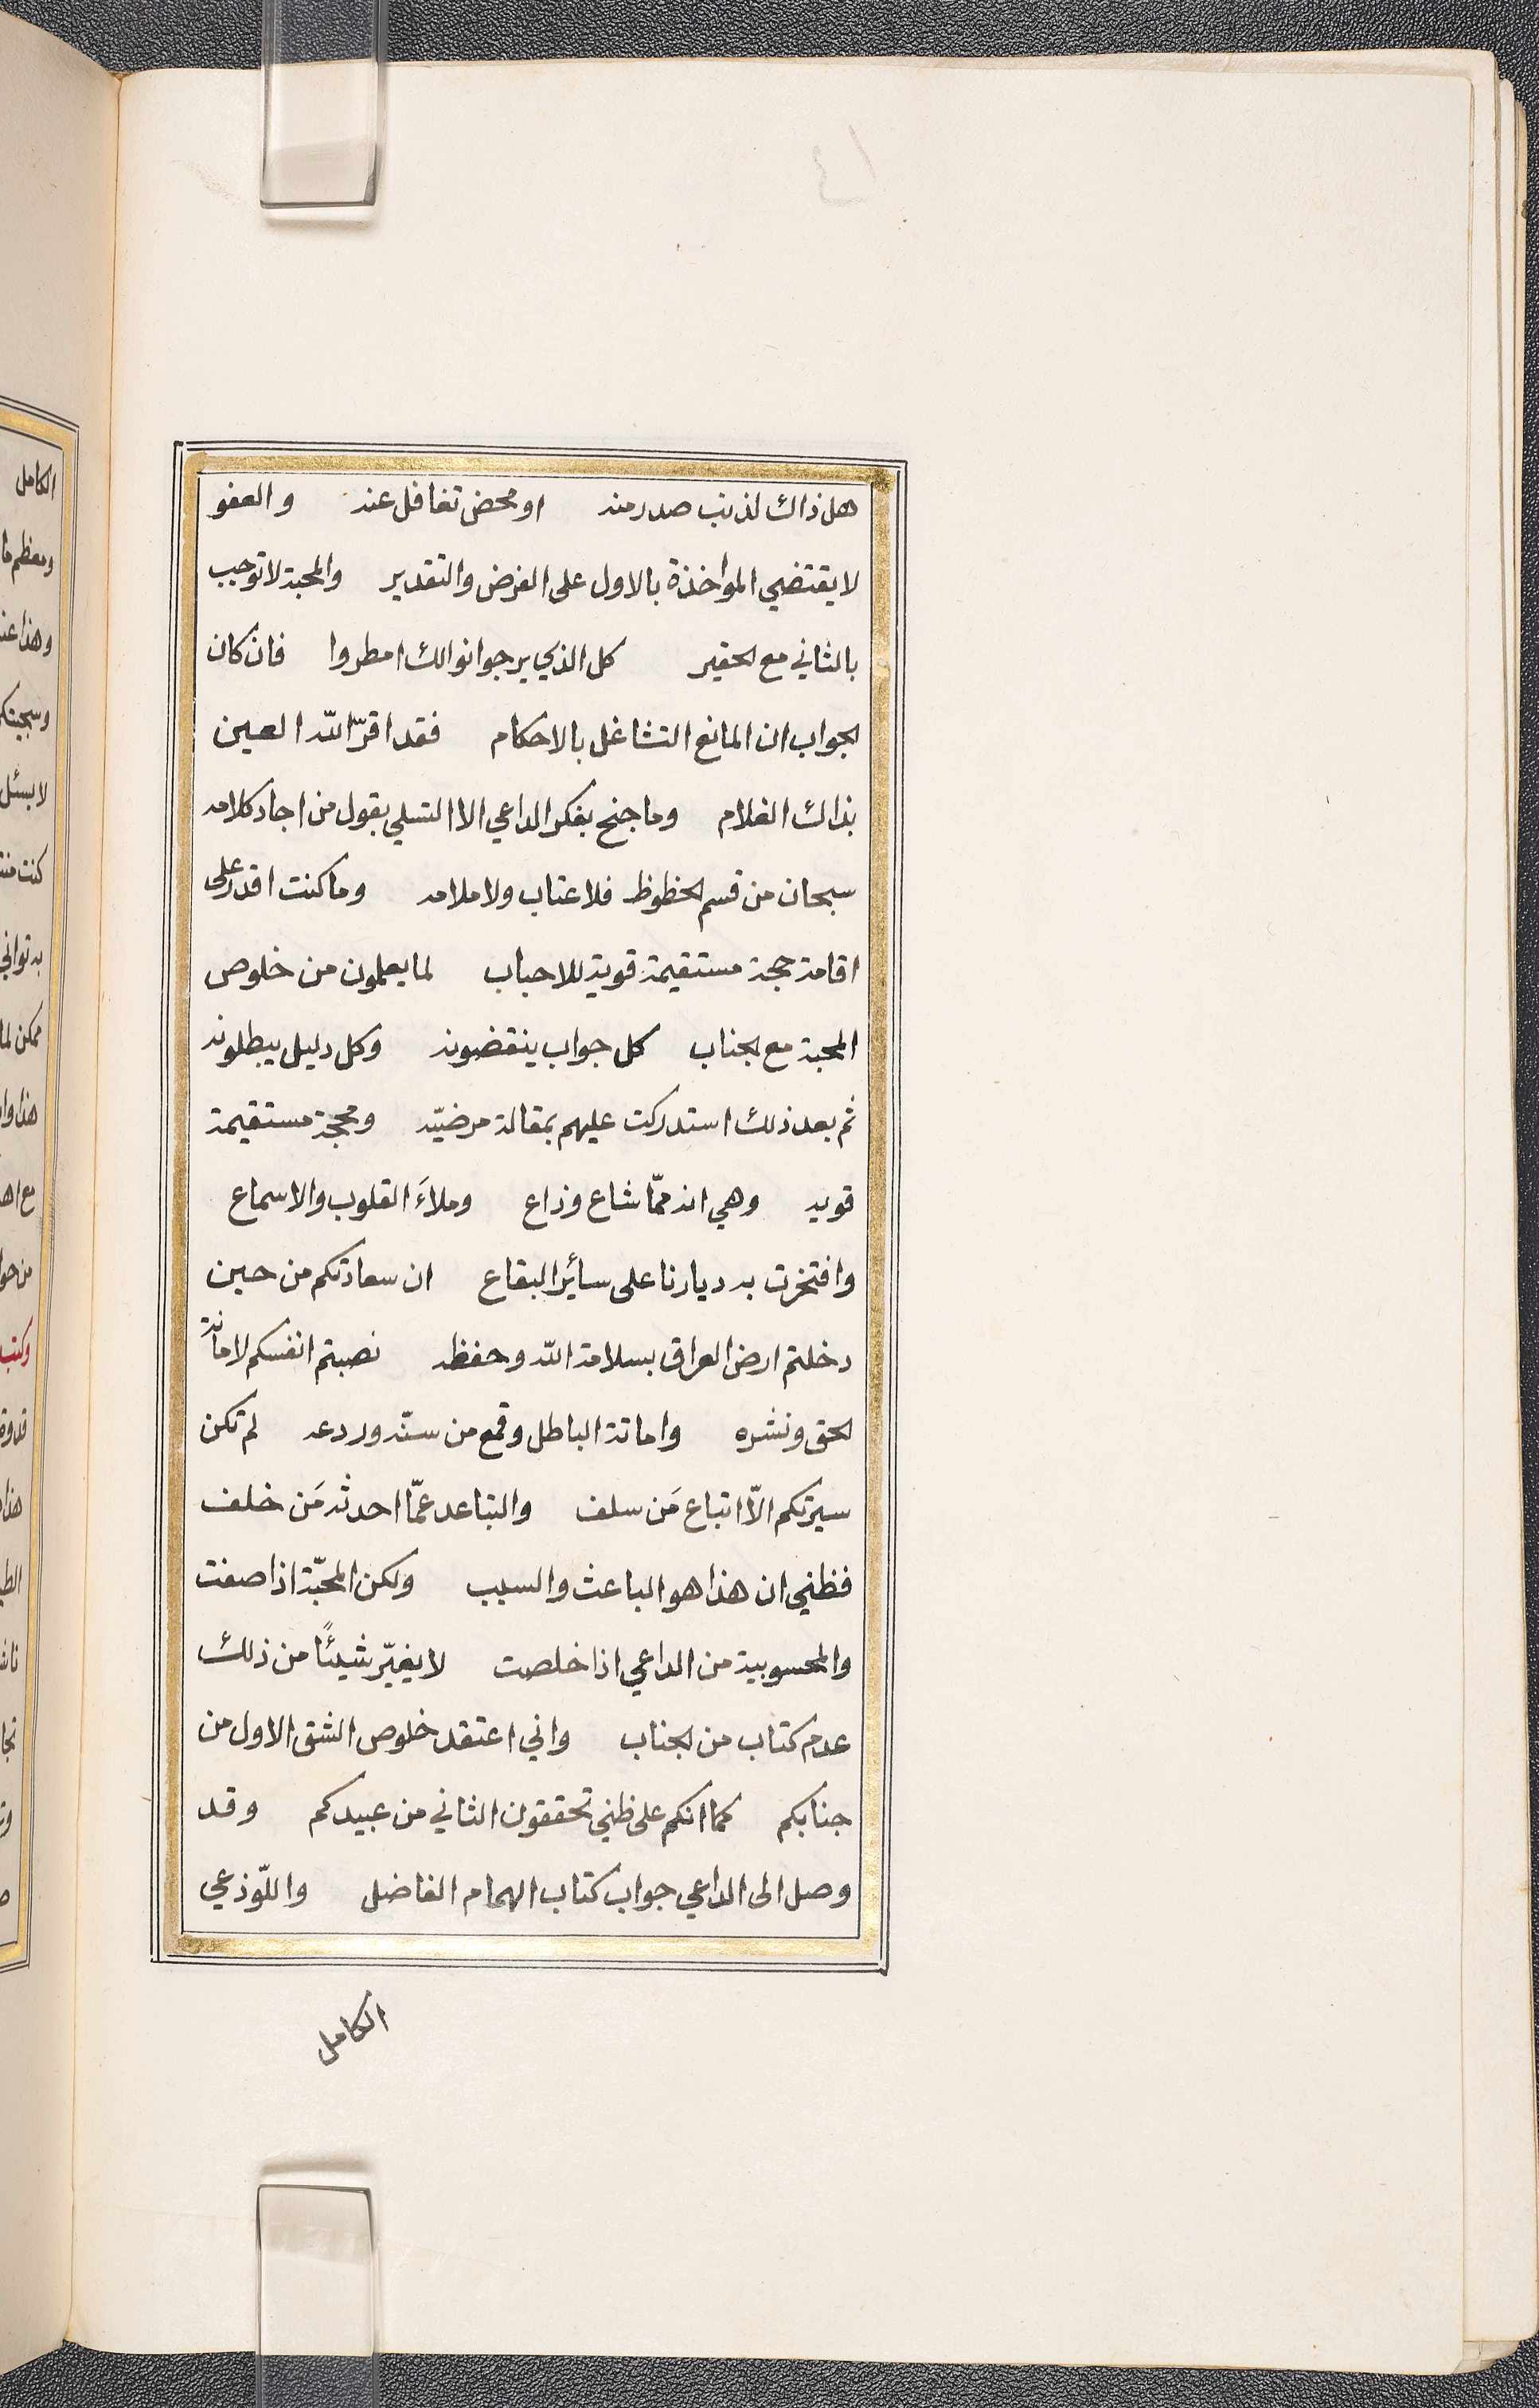 هل ذاك لذنب صدر منه او محض تغافل عنه والعفو
لا يقتضي المواخذة بالاول على الفرض والتقدير والمحبة لا توجب
بالثاني مع الحقير كل الذي يرجوا نوالك امطروا فان كان
الجواب ان المانع التشاغل بالاحكام فقد اقرّ الله العين
بذاك الغلام وما جنح بفكر الداعي الا التسلي بقول من اجاد كلامه
سبحان من قسم الحظوظ فلا عتاب ولا ملامه وما كنت اقدر على
اقامة حجة مستقيمة قوية للاحباب لما يعلمون من خلوص
المحبة مع الجناب كل جواب ينقضونه وكل دليل يبطلونه
ثم بعد ذلك استدركت عليهم بمقالة مرضيّه ومحجة مستقيمة
قويه وهي انه ممّا شاع وذاع وملاَء القلوب والاسماع
وافتخرت به ديارنا على سائر البقاع ان سعادتكم من حين
دخلتم ارض العراق بسلامة الله وحفظه نصبتم انفسكم لامانة
الحق ونشره واماتة الباطل وقمع من سنّه وردعه لم تكن
سيرتكم الّا اتباع مَن سلف والتباعد عمّا احدثه مَن خلف
فظني ان هذا هو الباعث والسبب ولكن المحبّة اذا صفت
والمحسوبية من الداعي اذا خلصت لا يغيّر شيئًا من ذلك
عدم كتاب من الجناب واني اعتقد خلوص الشق الاول من
جنابكم كما انكم على ظني تحققون الثاني من عبيدكم وقد
وصل الى الداعي جواب كتاب الهمام الفاضل واللّوذعي
الكامل